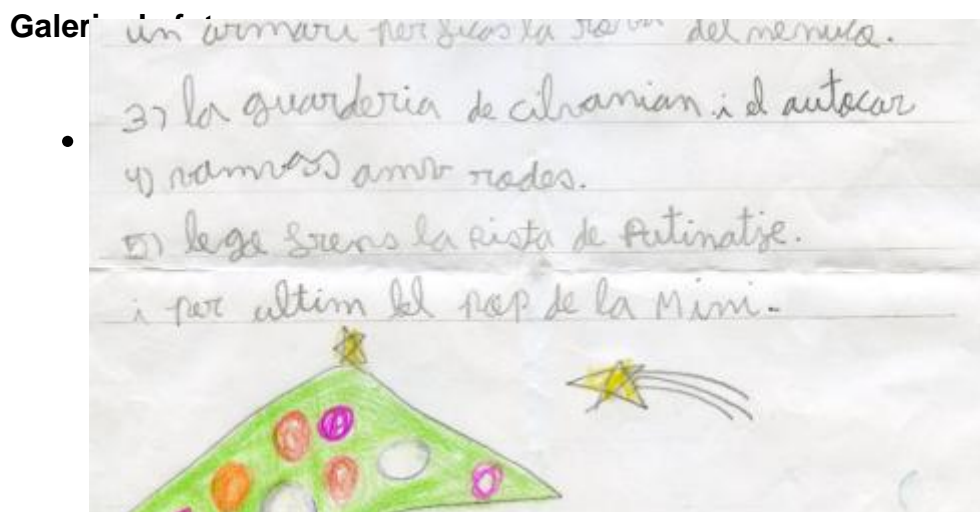 Galeria de fotos
un armari per ficar la roba del nenuco.
3) la guarderia de cilvanian i el autocar
4) vamvas amb rodes.
5) lego frens la pista de Patinatje.
i per ultim lel pop de la Mini.